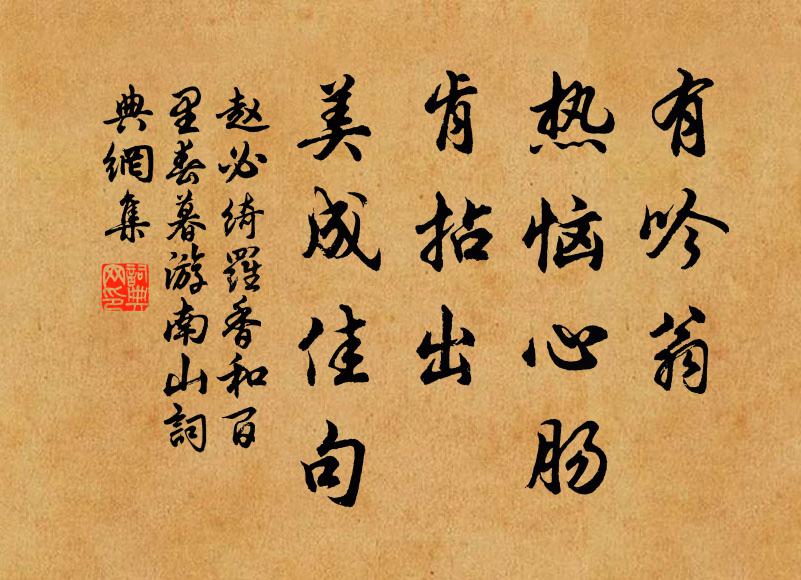 有吟翁
热恼心肠
肯拈出
美成佳句
赵必绮羅香和百
里春暮游南山詞
典網集
詞典网印